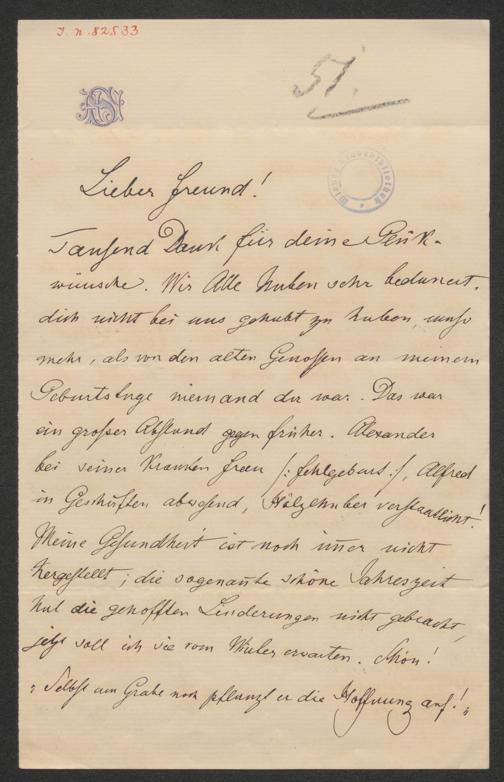 J. n. 82533
51.
Wiener Stadtbibliothek
Lieber Freund!
Tausend Dank für deine Glück-
wünsche. Wir Alle haben sehr bedauert,
dich nicht bei uns gehabt zu haben, umso
mehr, als von den alten Genossen an meinem
Geburtstage niemand da war. Das war
ein großer Abstand gegen früher. Alexander
bei seiner kranken Frau /: Fehlgeburt :/, Alfred
in Geschäften abwesend, Hölzlhuber verstaatlicht!
Meine Gesundheit ist noch im̅er nicht
hergestellt; die sogenan̅te schöne Jahreszeit
hat die gehofften Linderungen nicht gebracht,
jetzt soll ich sie vom Winter erwarten. Schön!
„Selbst am Grabe noch pflanzt er die Hoffnung auf!„